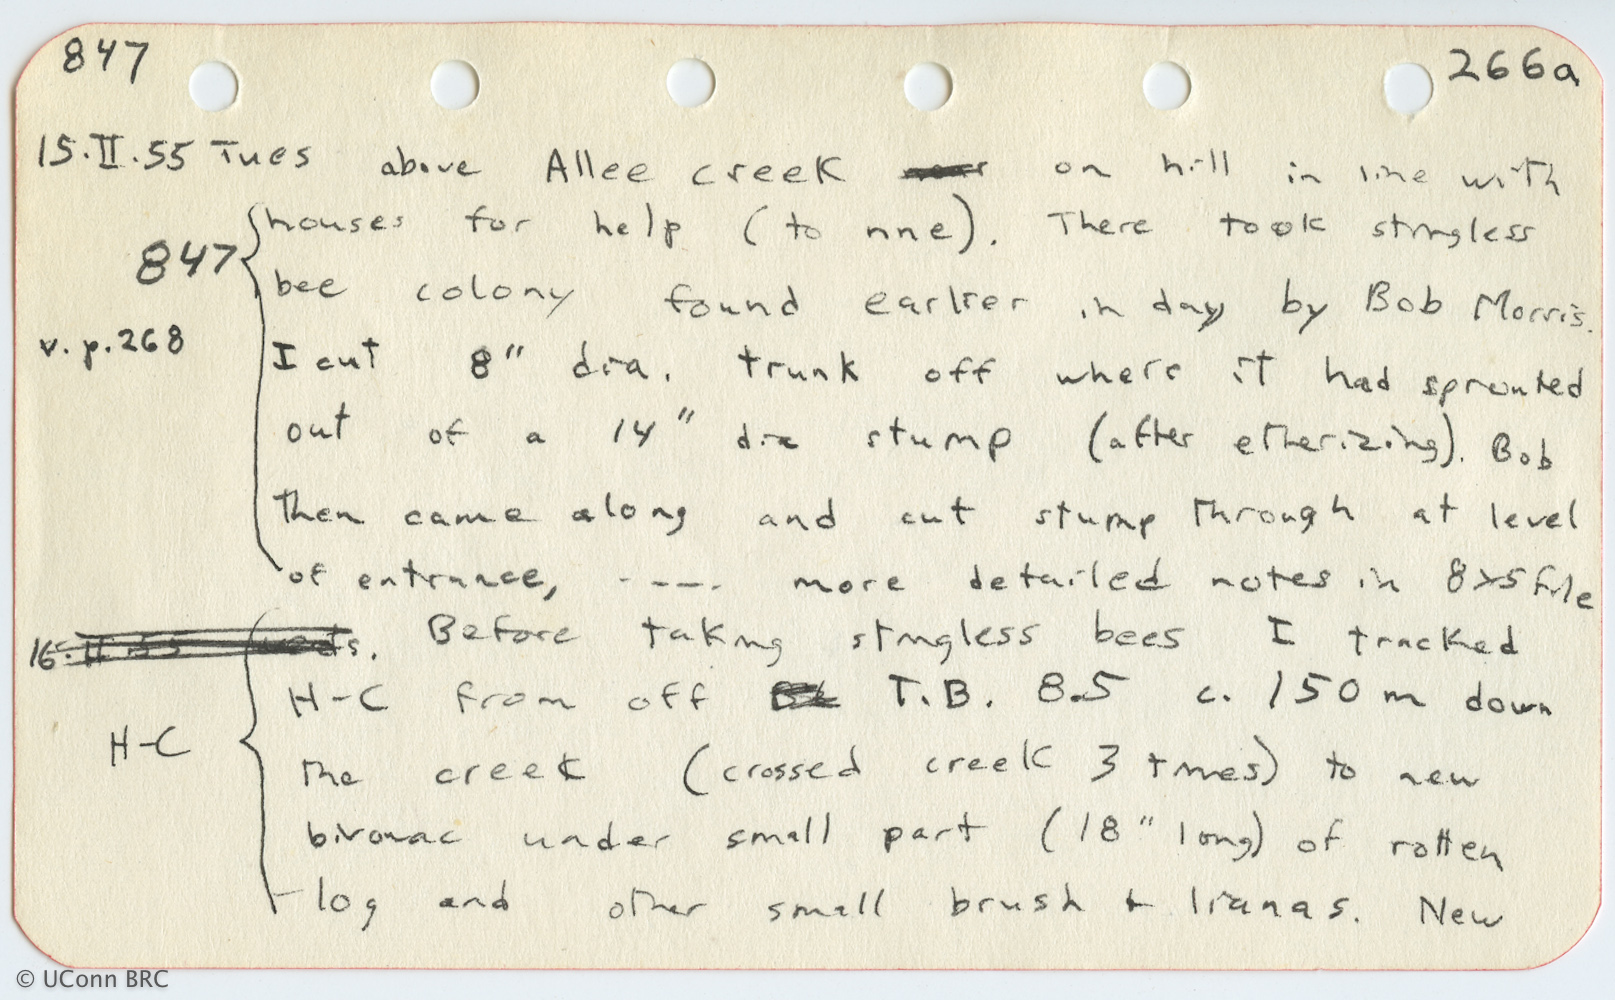 847 266a
15.II.55 Tues above Allee creek on hill in line with
houses for help (to nne). There took stingless
847
bee colony found earlier in day by Bob Morris.
v. p. 268
I cut 8" dia. trunk off where it had sprouted
out of a 14" dia stump (after etherizing). Bob
then came along and cut stump through at level
of entrance, ---- more detailed notes in 8x5 file
16.II.55 Weds. Before taking stingless bees I tracked
H-C from off T.B. 8.5 c. 150 m down
H-C
the creek (crossed creek 3 times) to new
bivouac under small part (18" long) of rotten
log and other small brush + lianas. New
© UConn BRC